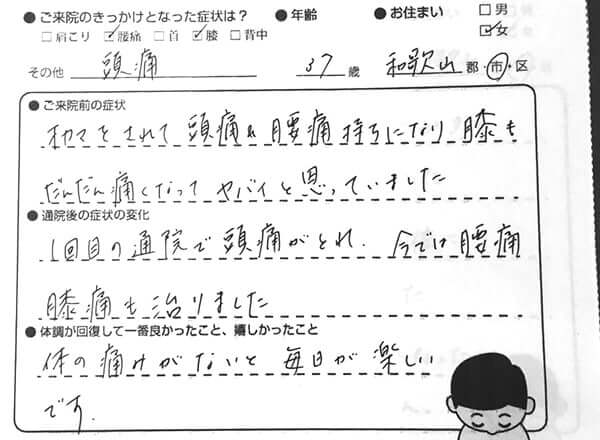 ●ご来院のきっかけとなった症状は? ●年齢 ●お住まい □男
□肩こり ☑腰痛 □首 ☑膝 □背中 ☑女
その他 頭痛 37歳 和歌山 郡・市・区
●ご来院前の症状
オカマをされて頭痛&腰痛持ちになり膝も
だんだん痛くなってヤバイと思っていました
●通院後の症状の変化
1回目の通院で頭痛がとれ、今では腰痛
膝痛も治りました
●体調が回復して一番良かったこと、嬉しかったこと
体の痛みがないと毎日が楽しい
です。